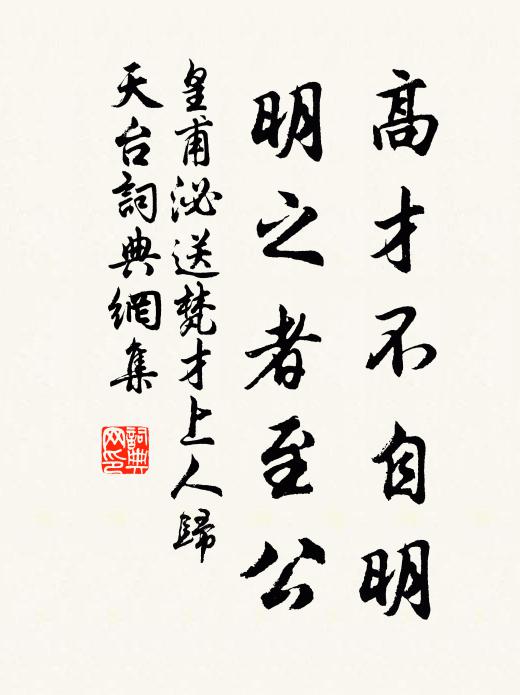 高才不自明
明之者至公
皇甫泌送梵才上人歸
天台詞典網集
詞典网印